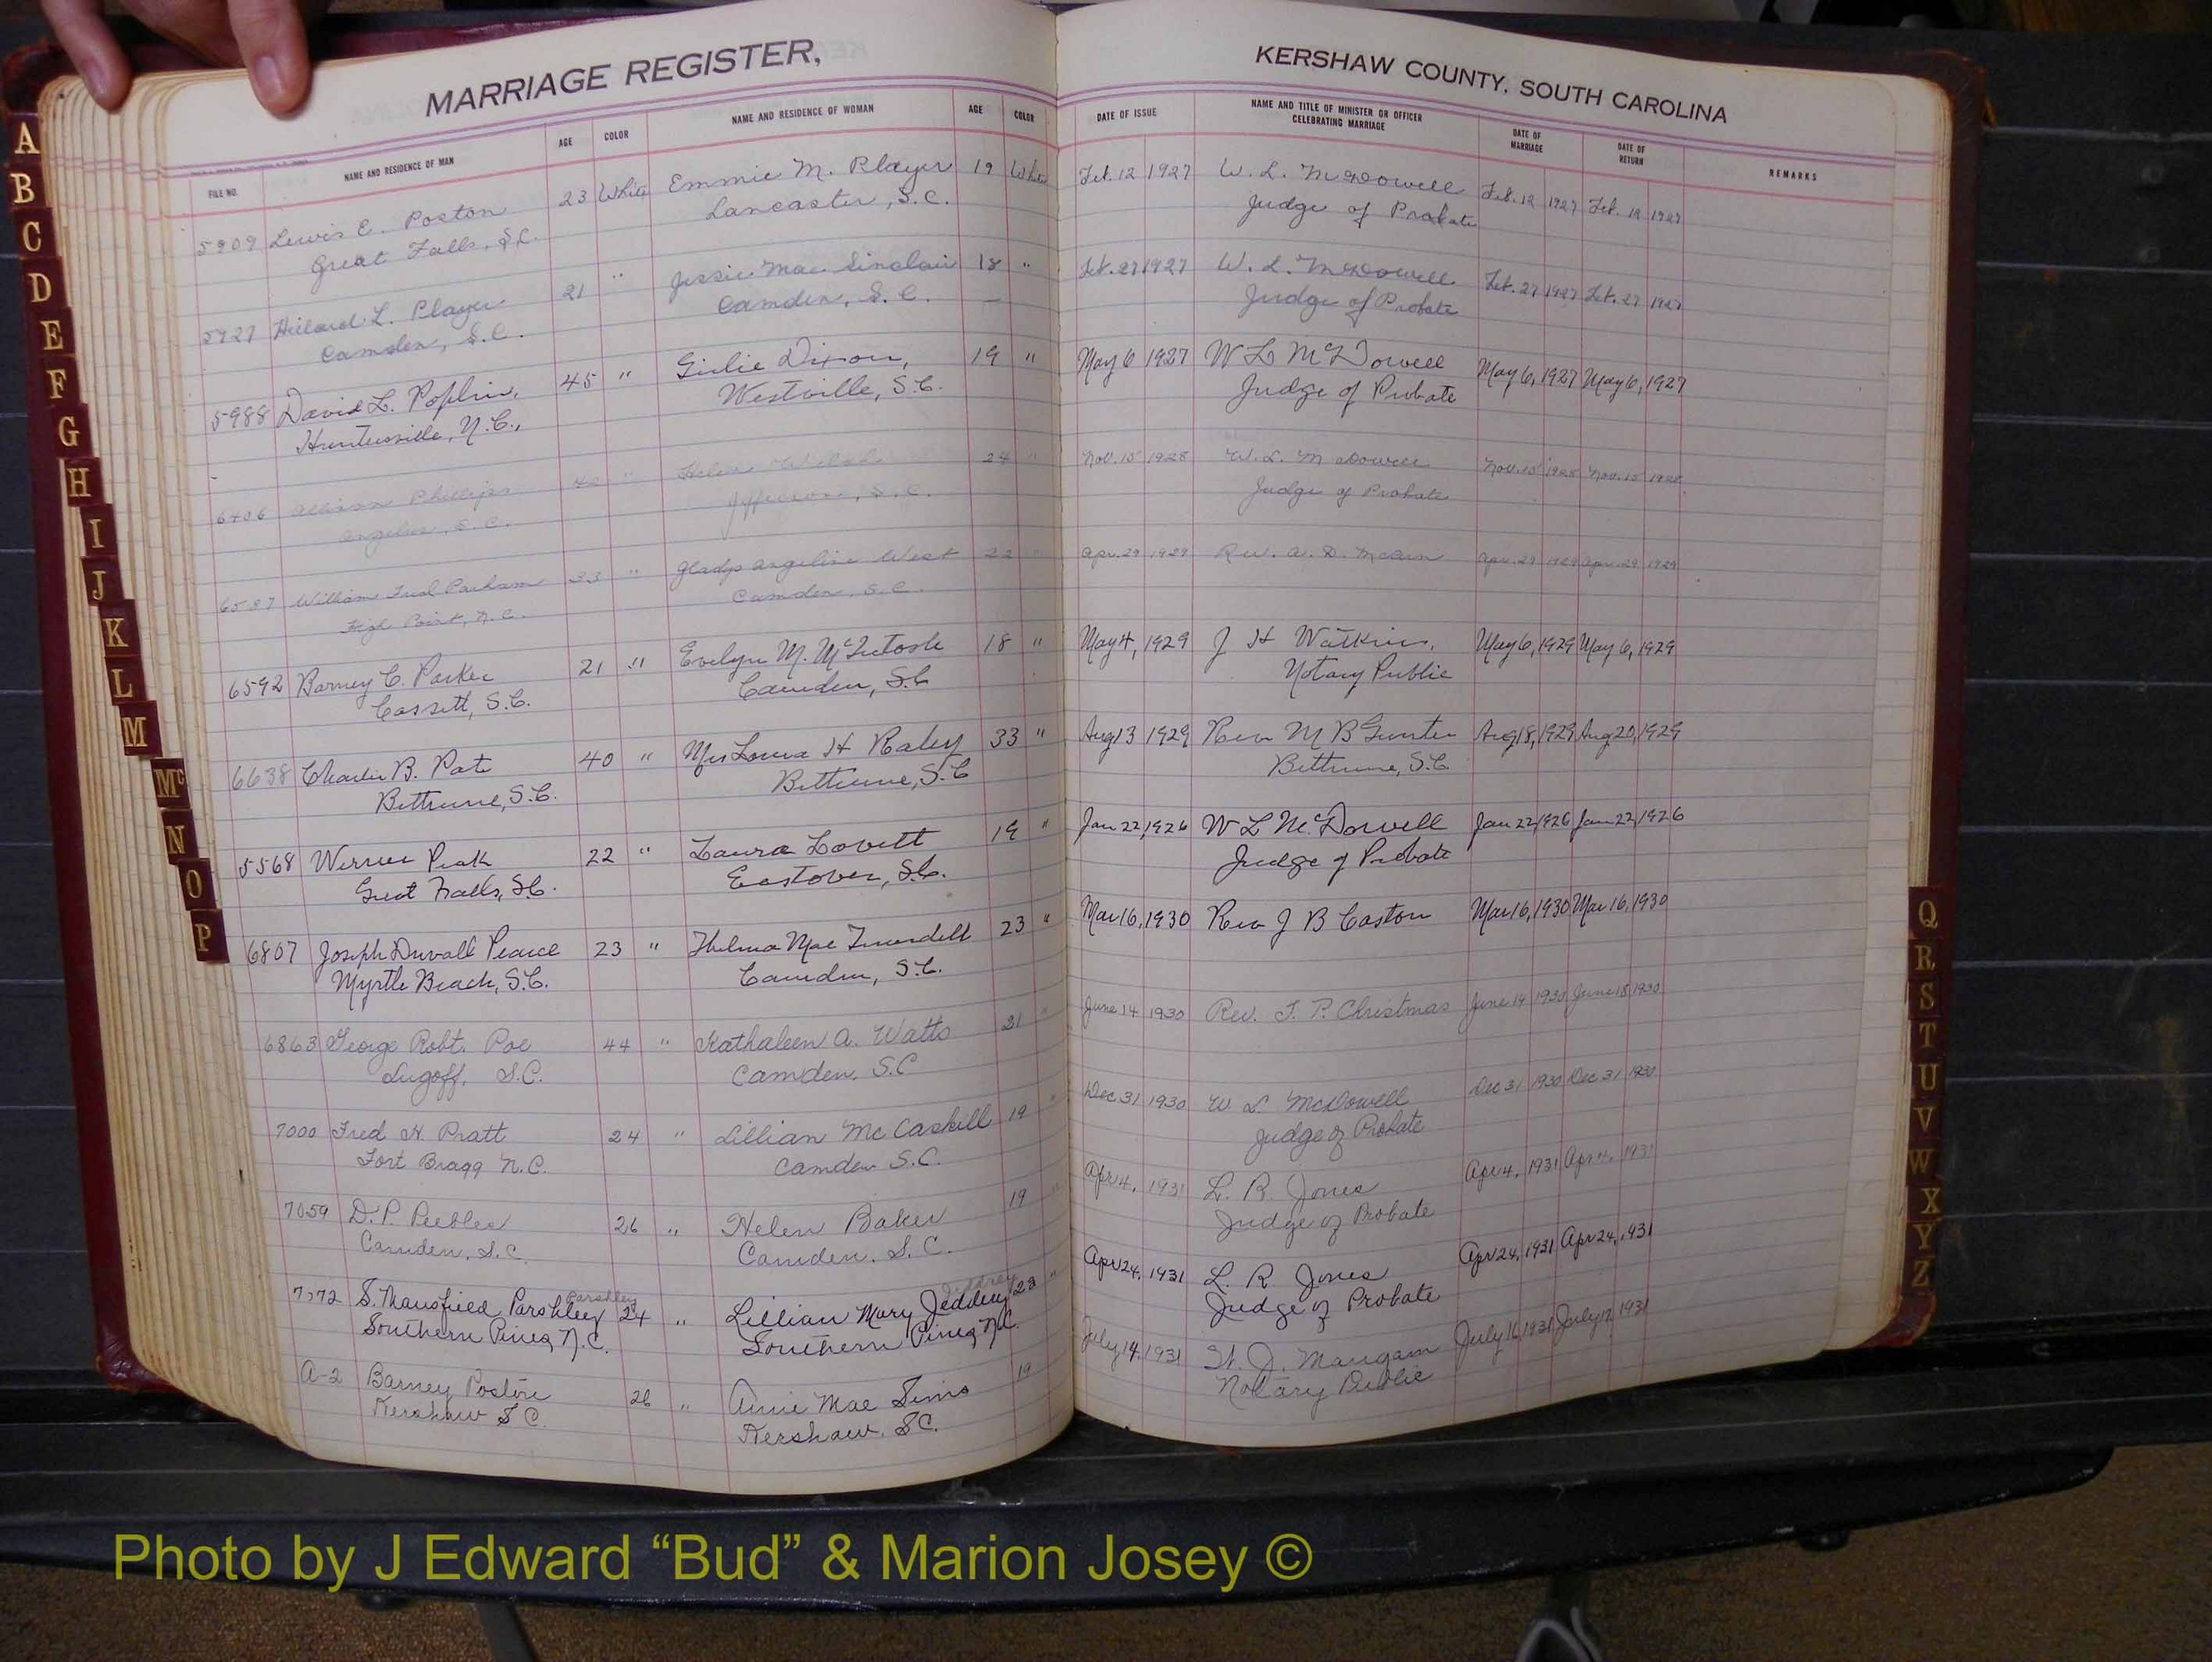 MARRIAGE REGISTER,
KERSHAW COUNTY, SOUTH CAROLINA
FILE NO. NAME AND RESIDENCE OF MAN AGE COLOR NAME AND RESIDENCE OF WOMAN AGE COLOR DATE OF ISSUE NAME AND TITLE OF MINISTER OR OFFICER CELEBRATING MARRIAGE DATE OF MARRIAGE DATE OF RETURN REMARKS
5909 Lewis E. Poston 23 White Emmie M. Player 19 White Feb. 12 1927 W. L. McDowell Feb. 12 1927 Feb. 12 1927
Great Falls, S.C. Lancaster, S.C. Judge of Probate
5927 L. Player 21 " Jessie Mae Sinclair 18 " Feb. 27 1927 W. L. McDowell Feb. 27 1927 Feb. 27 1927
Camden, S.C. Camden, S.C. Judge of Probate
5988 David L. Poplin, 45 " Girlie Dixon, 19 " May 6 1927 W L McDowell May 6, 1927 May 6, 1927
Huntersville, N.C., Westville, S.C. Judge of Probate
6406 Phillips " Helen 24 " Nov. 15 1928 W. L. McDowell Nov. 15 1928 Nov. 15 1928
Angelus, S.C. Jefferson, S.C. Judge of Probate
William Parham 23 " Gladys Angeline West 22 " Apr. 29 1929 Rev. A. D. Apr. 29 1929 Apr. 29 1929
High Point, N.C. Camden, S.C.
6592 Barney C. Parker 21 " Evelyn M. McIntosh 18 " May 4, 1929 J H Watkins, May 6, 1929 May 6, 1929
Cassett, S.C. Camden, S.C Notary Public
6638 Charlie B. Pate 40 " Mrs H Raley 33 " Aug 13 1929 Rev M B Gunter Aug 18, 1929 Aug 20, 1929
Bethune, S.C. Bethune, S.C Bethune, S.C.
5568 Peak 22 " Laura Lovett 19 " Jan 22, 1926 W L McDowell Jan 22, 1926 Jan 22, 1926
Great Falls, S.C. Eastover, S.C. Judge of Probate
6807 Joseph Duvall Pearce 23 " Thelma Mae 23 " Mar 16, 1930 Rev J B Caston Mar 16, 1930 Mar 16, 1930
Myrtle Beach, S.C. Camden, S.C.
6863 George Robt. Poe 44 " Kathaleen A. Watts 21 " June 14 1930 Rev. F. P. Christmas June 14 1930 June 18 1930
Lugoff, S.C. Camden, S.C
7000 Fred H. Pratt 24 " Lillian McCaskill 19 " Dec 31 1930 W L McDowell Dec 31 1930 Dec 31 1930
Fort Bragg N.C. Camden S.C. Judge of Probate
7059 D. P. Peebles 26 " Helen Baker 19 " Apr 4, 1931 L. R. Jones Apr 4, 1931 Apr 4, 1931
Camden, S.C Camden, S.C. Judge of Probate
Parshley
7072 S. Mansfield Parshley 24 " Lillian Mary 28 " Apr 24, 1931 L. R. Jones Apr 24, 1931 Apr 24, 1931
Southern Pines, N.C. Southern Pines, N.C. Judge of Probate
A-2 Barney Poston 26 " Annie Mae Sims 19 July 14, 1931 Mangam July 16 1931 July 17, 1931
Kershaw S C. Kershaw, S C. Notary Public
A
B
C
D
E
F
G
H
I
J
K
L
M
Mc
N
O
P
Q
R
S
T
U
V
W
X
Y
Z
Photo by J Edward “Bud” & Marion Josey ©